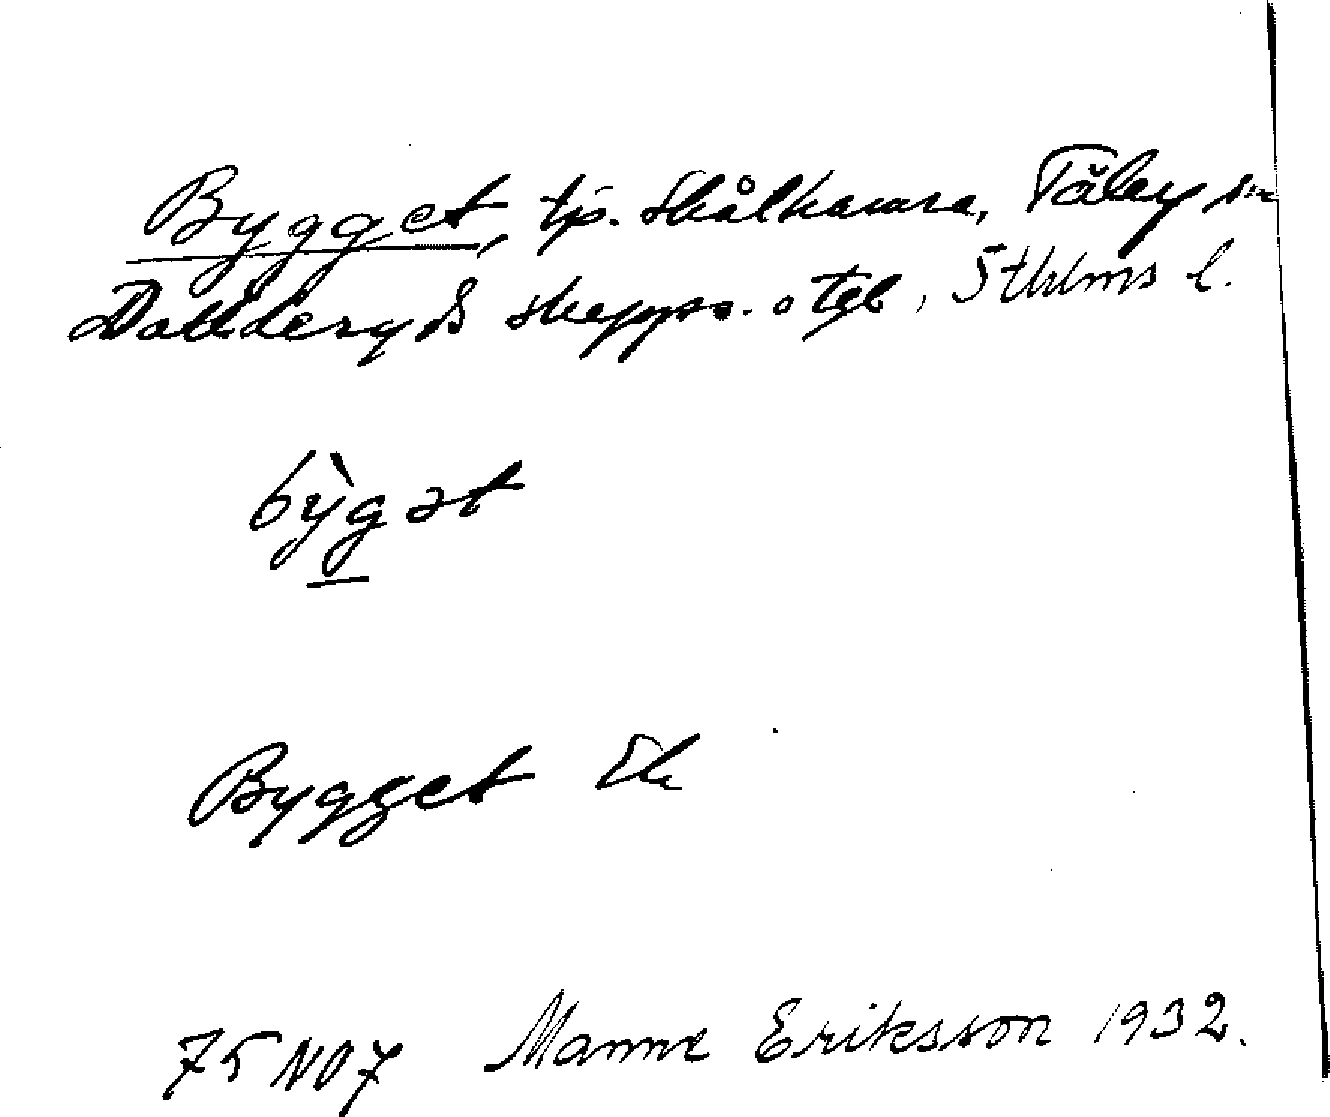 Bygget, tp. Skålhamra, Täby sn
Danderyds skepps. o Tgl, Sthlms l.
by̍gət
Bygget Ek
75 NO 7 Manne Eriksson 1932.